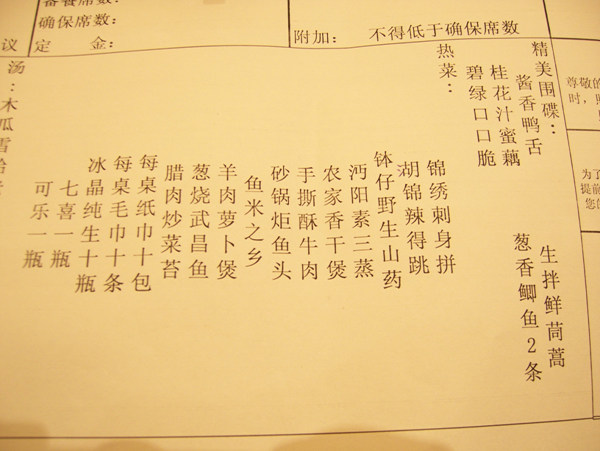 备餐席数:
确保席数:
议 定 金:
附加: 不得低于确保席数
精美围碟:
酱香鸭舌 生拌鲜茼蒿
桂花汁蜜藕 葱香鲫鱼2条
碧绿口口脆
热菜:
锦绣刺身拼
胡锦辣得跳
钵仔野生山药
沔阳素三蒸
农家香干煲
手撕酥牛肉
砂锅炬鱼头
鱼米之乡
羊肉萝卜煲
葱烧武昌鱼
腊肉炒菜苔
每桌纸巾十包
每桌毛巾十条
冰晶纯生十瓶
七喜一瓶
可乐一瓶
汤:木瓜雪蛤
尊敬的
时,
为了
提前
您的